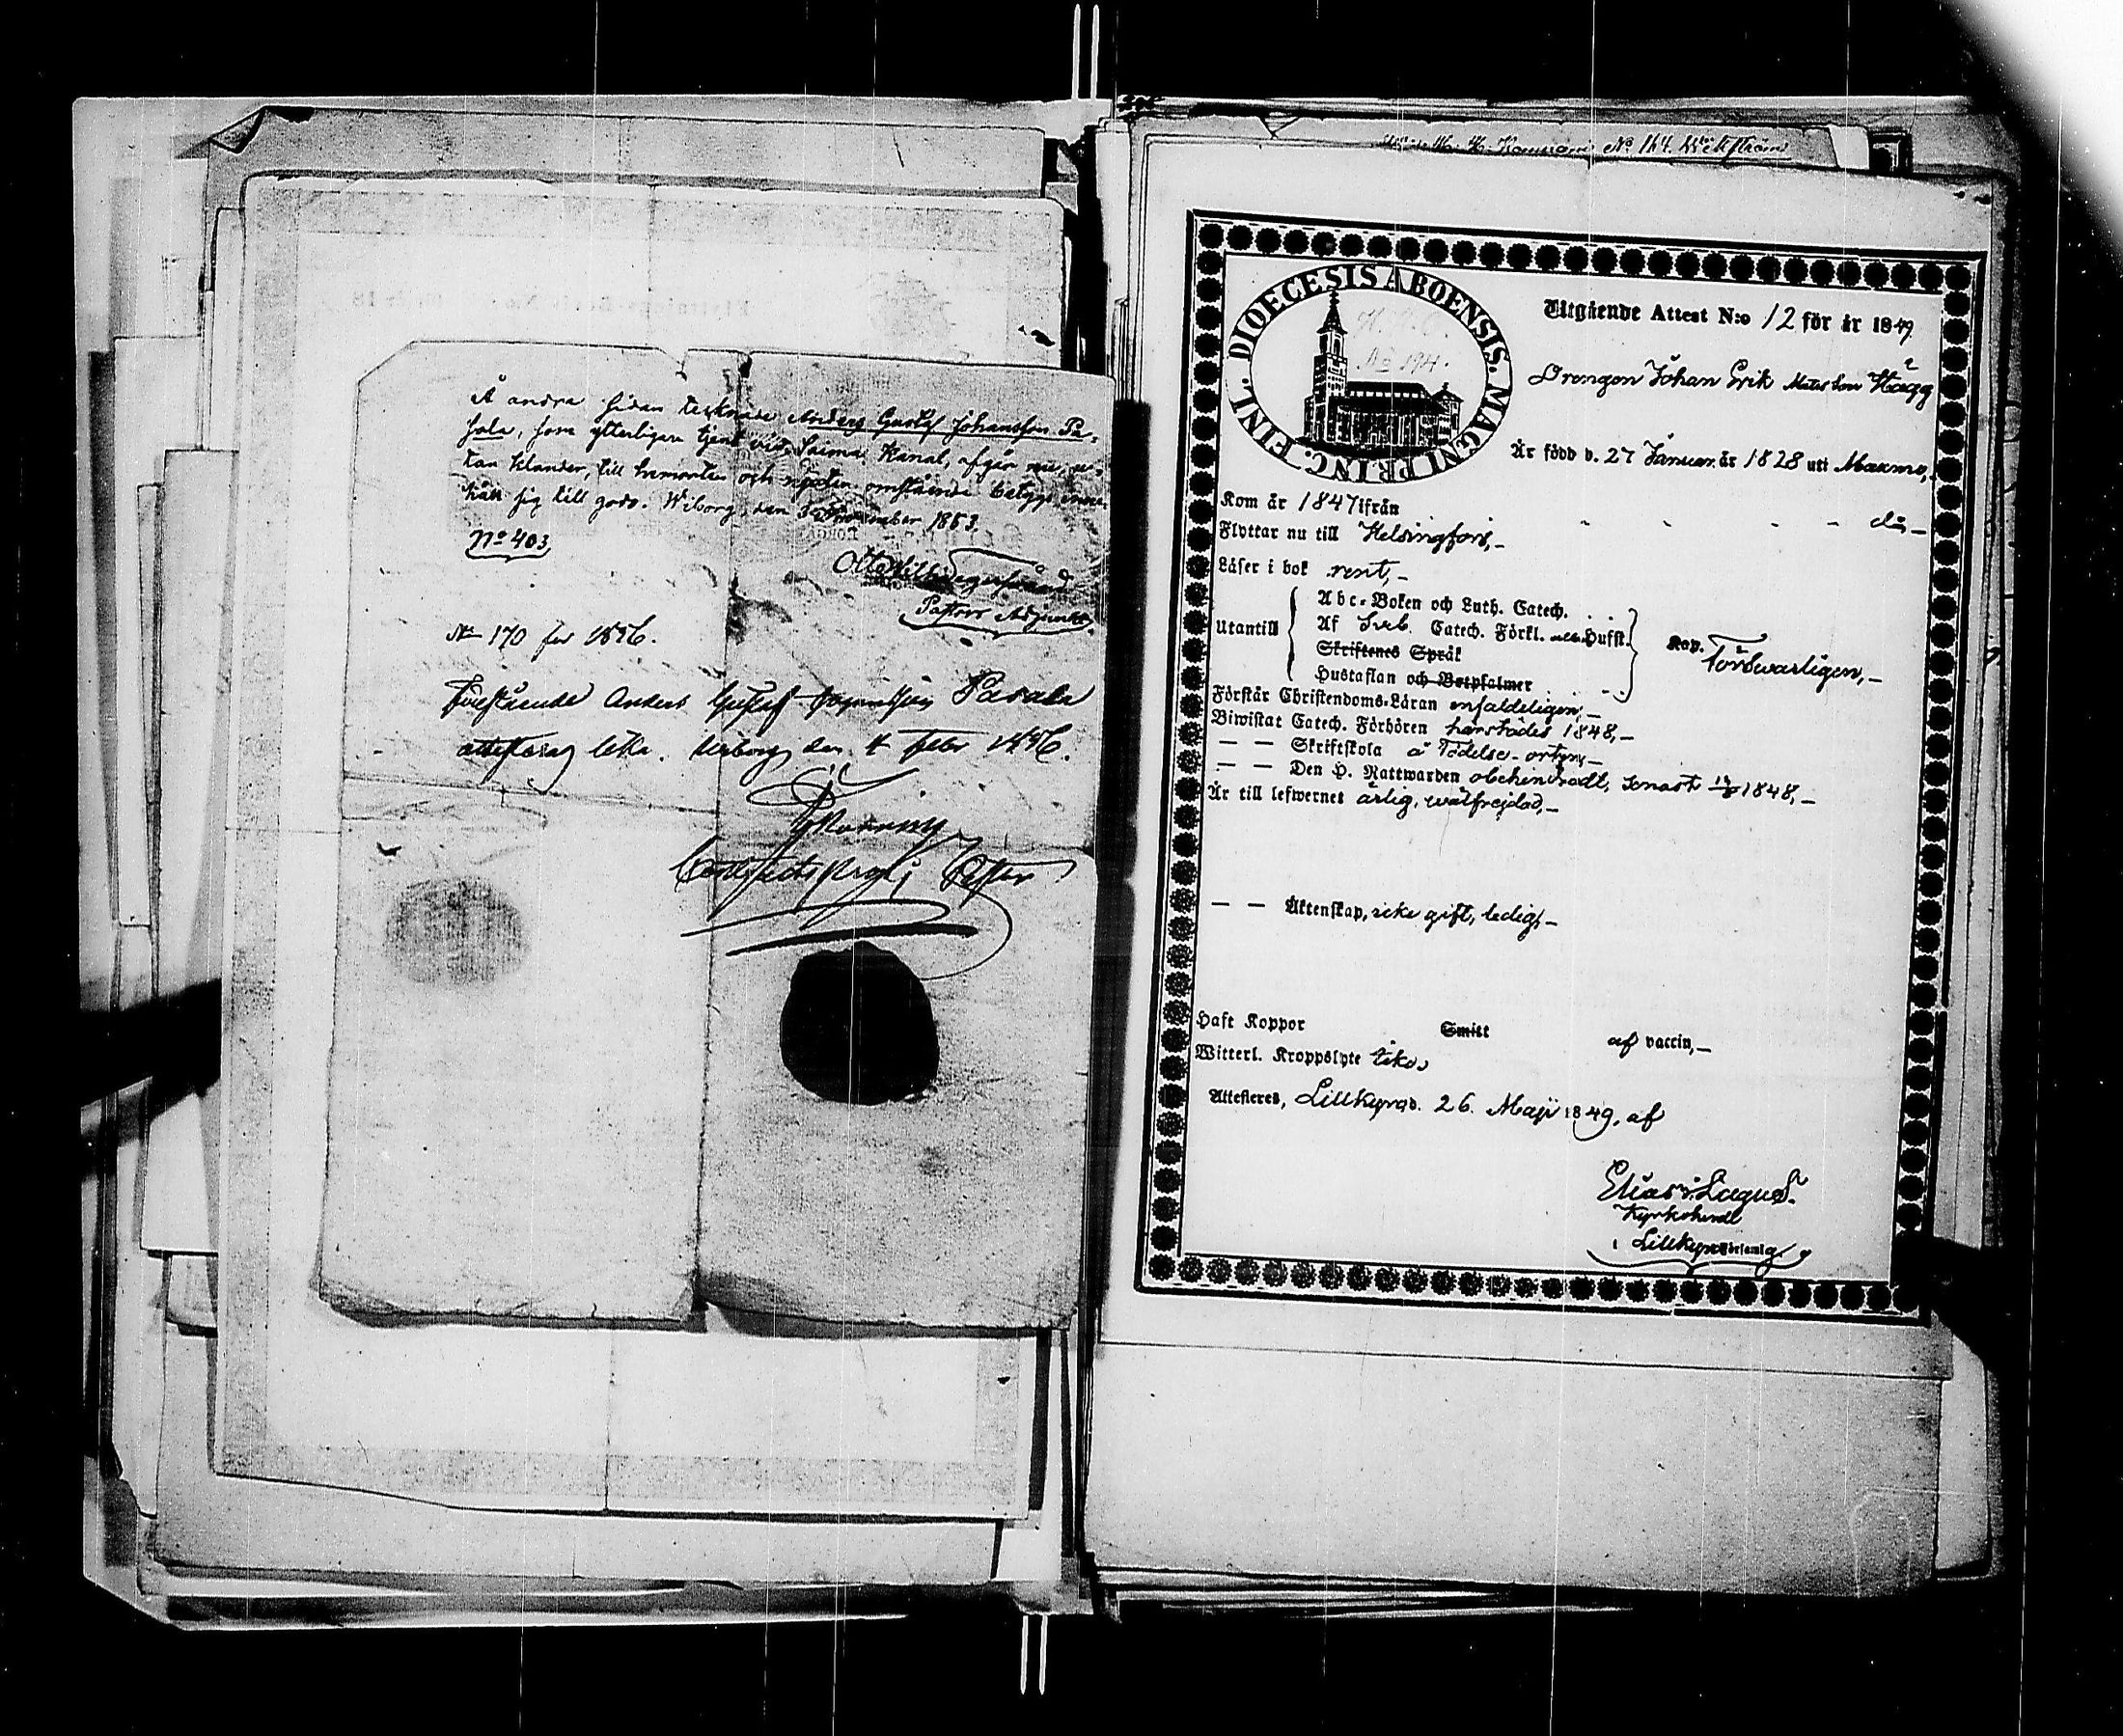 Å andra sidan tecknade Anders Gustaf Johansson Pa-
sala, som ytterligare tjent vid Saima Kanal, afgår nu, u-
tan klander, till hemorten och omstående betyg
sig till godo. Wiborg, den November 1853.
No 403
Pastors Adjunkt.
No 170 for 1856.
Anders Gustaf Pasala
Wiborg den 4 Febr 1856.
Pastor
No 164. Wikström
DIOECESIS ABOENSIS. MAGNI PRINC. FINL.
No 194.
Utgående Attest N:o 12 för år 1849.
Drengen Johan Erik Matsson Hägg
Är född d. 27 Januar. år 1828 uti Maxmo,
Kom år 1847 ifrån do –
Flyttar nu till Helsingfors, –
Läser i bok rent, –
Utantill
Abc-Boken och Luth. Catech.
Af Sveb. Catech. Förkl. Hufst.
Skriftenes Språk
Hustaflan och Botpsalmer
Kap. Försvarligen, –
Förstår Christendoms-Läran enfaldeligen, –
Biwistat Catech. Förhören härstädes 1848, –
— — Skriftskola å Födelse-orten, –
— — Den H. Nattwarden obehindradt, senast 1848, –
Är till lefwernet ärlig, wälfrejdad, –
— — Äktenskap, icke gift, ledig, –
Haft Koppor Smitt af vaccin, –
Witterl. Kroppslyte icke,
Attesteres, Lillkyro d. 26. Maji 1849, af
Elias Lagus.
Kyrkoherde
i Lillkyro Församlg.